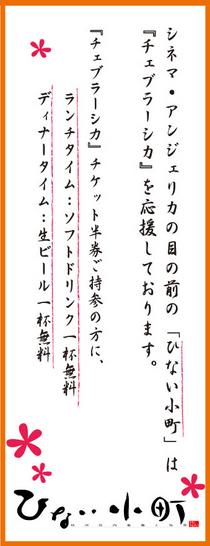 シネマ・アンジェリカの目の前の「ひない小町」は
『チェブラーシカ』を応援しております。
『チェブラーシカ』チケット半券ご持参の方に、
ランチタイム：ソフトドリンク一杯無料
ディナータイム：生ビール一杯無料
ひない小町